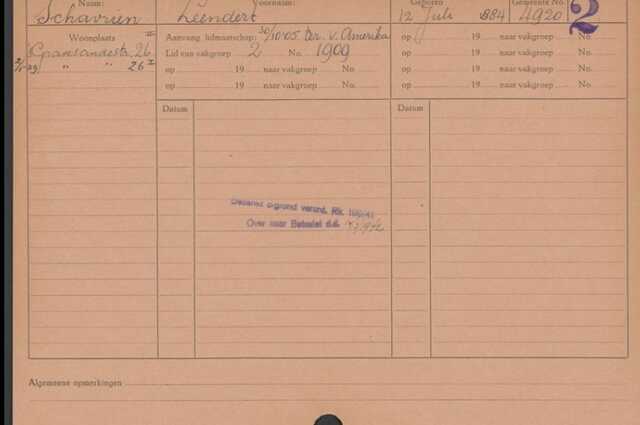 Naam: Voornaam: Geboren Gemeente No.
Schavrien Leendert 12 Juli 884 4920 2
Woonplaats II Aanvang lidmaatschap: 30/10.05 ter. v. Amerika op 19 naar vakgroep No.
26 Lid van vakgroep 2 No. 1909 op 19 naar vakgroep No.
" " 26 I op 19 naar vakgroep No. op 19 naar vakgroep No.
op 19 naar vakgroep No. op 19 naar vakgroep No.
Datum Datum
o.grond verord. Rk.
Over naar d.d.
Algemeene opmerkingen